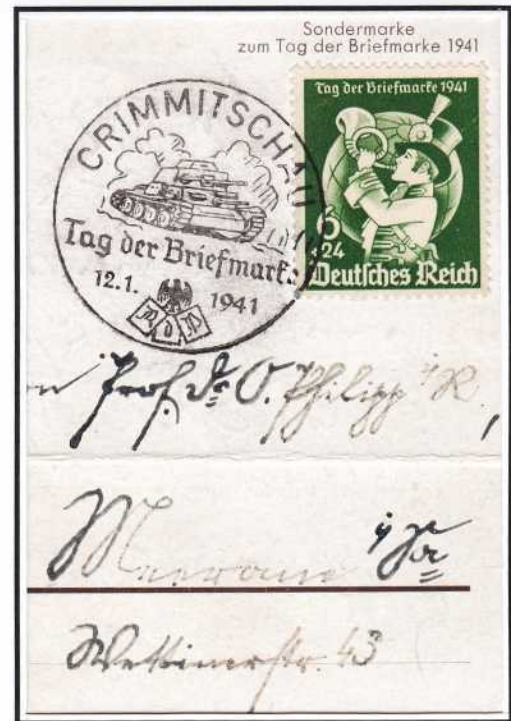 Sondermarke
zum Tag der Briefmarke 1941
Tag der Briefmarke 1941
6
+24
Deutsches Reich
CRIMMITSCHAU
Tag der Briefmarke
12.1. 1941
R d P
n Prof. Dr. O. Philipp i/R,
Meerane i/Sa
Wettinerstr. 43